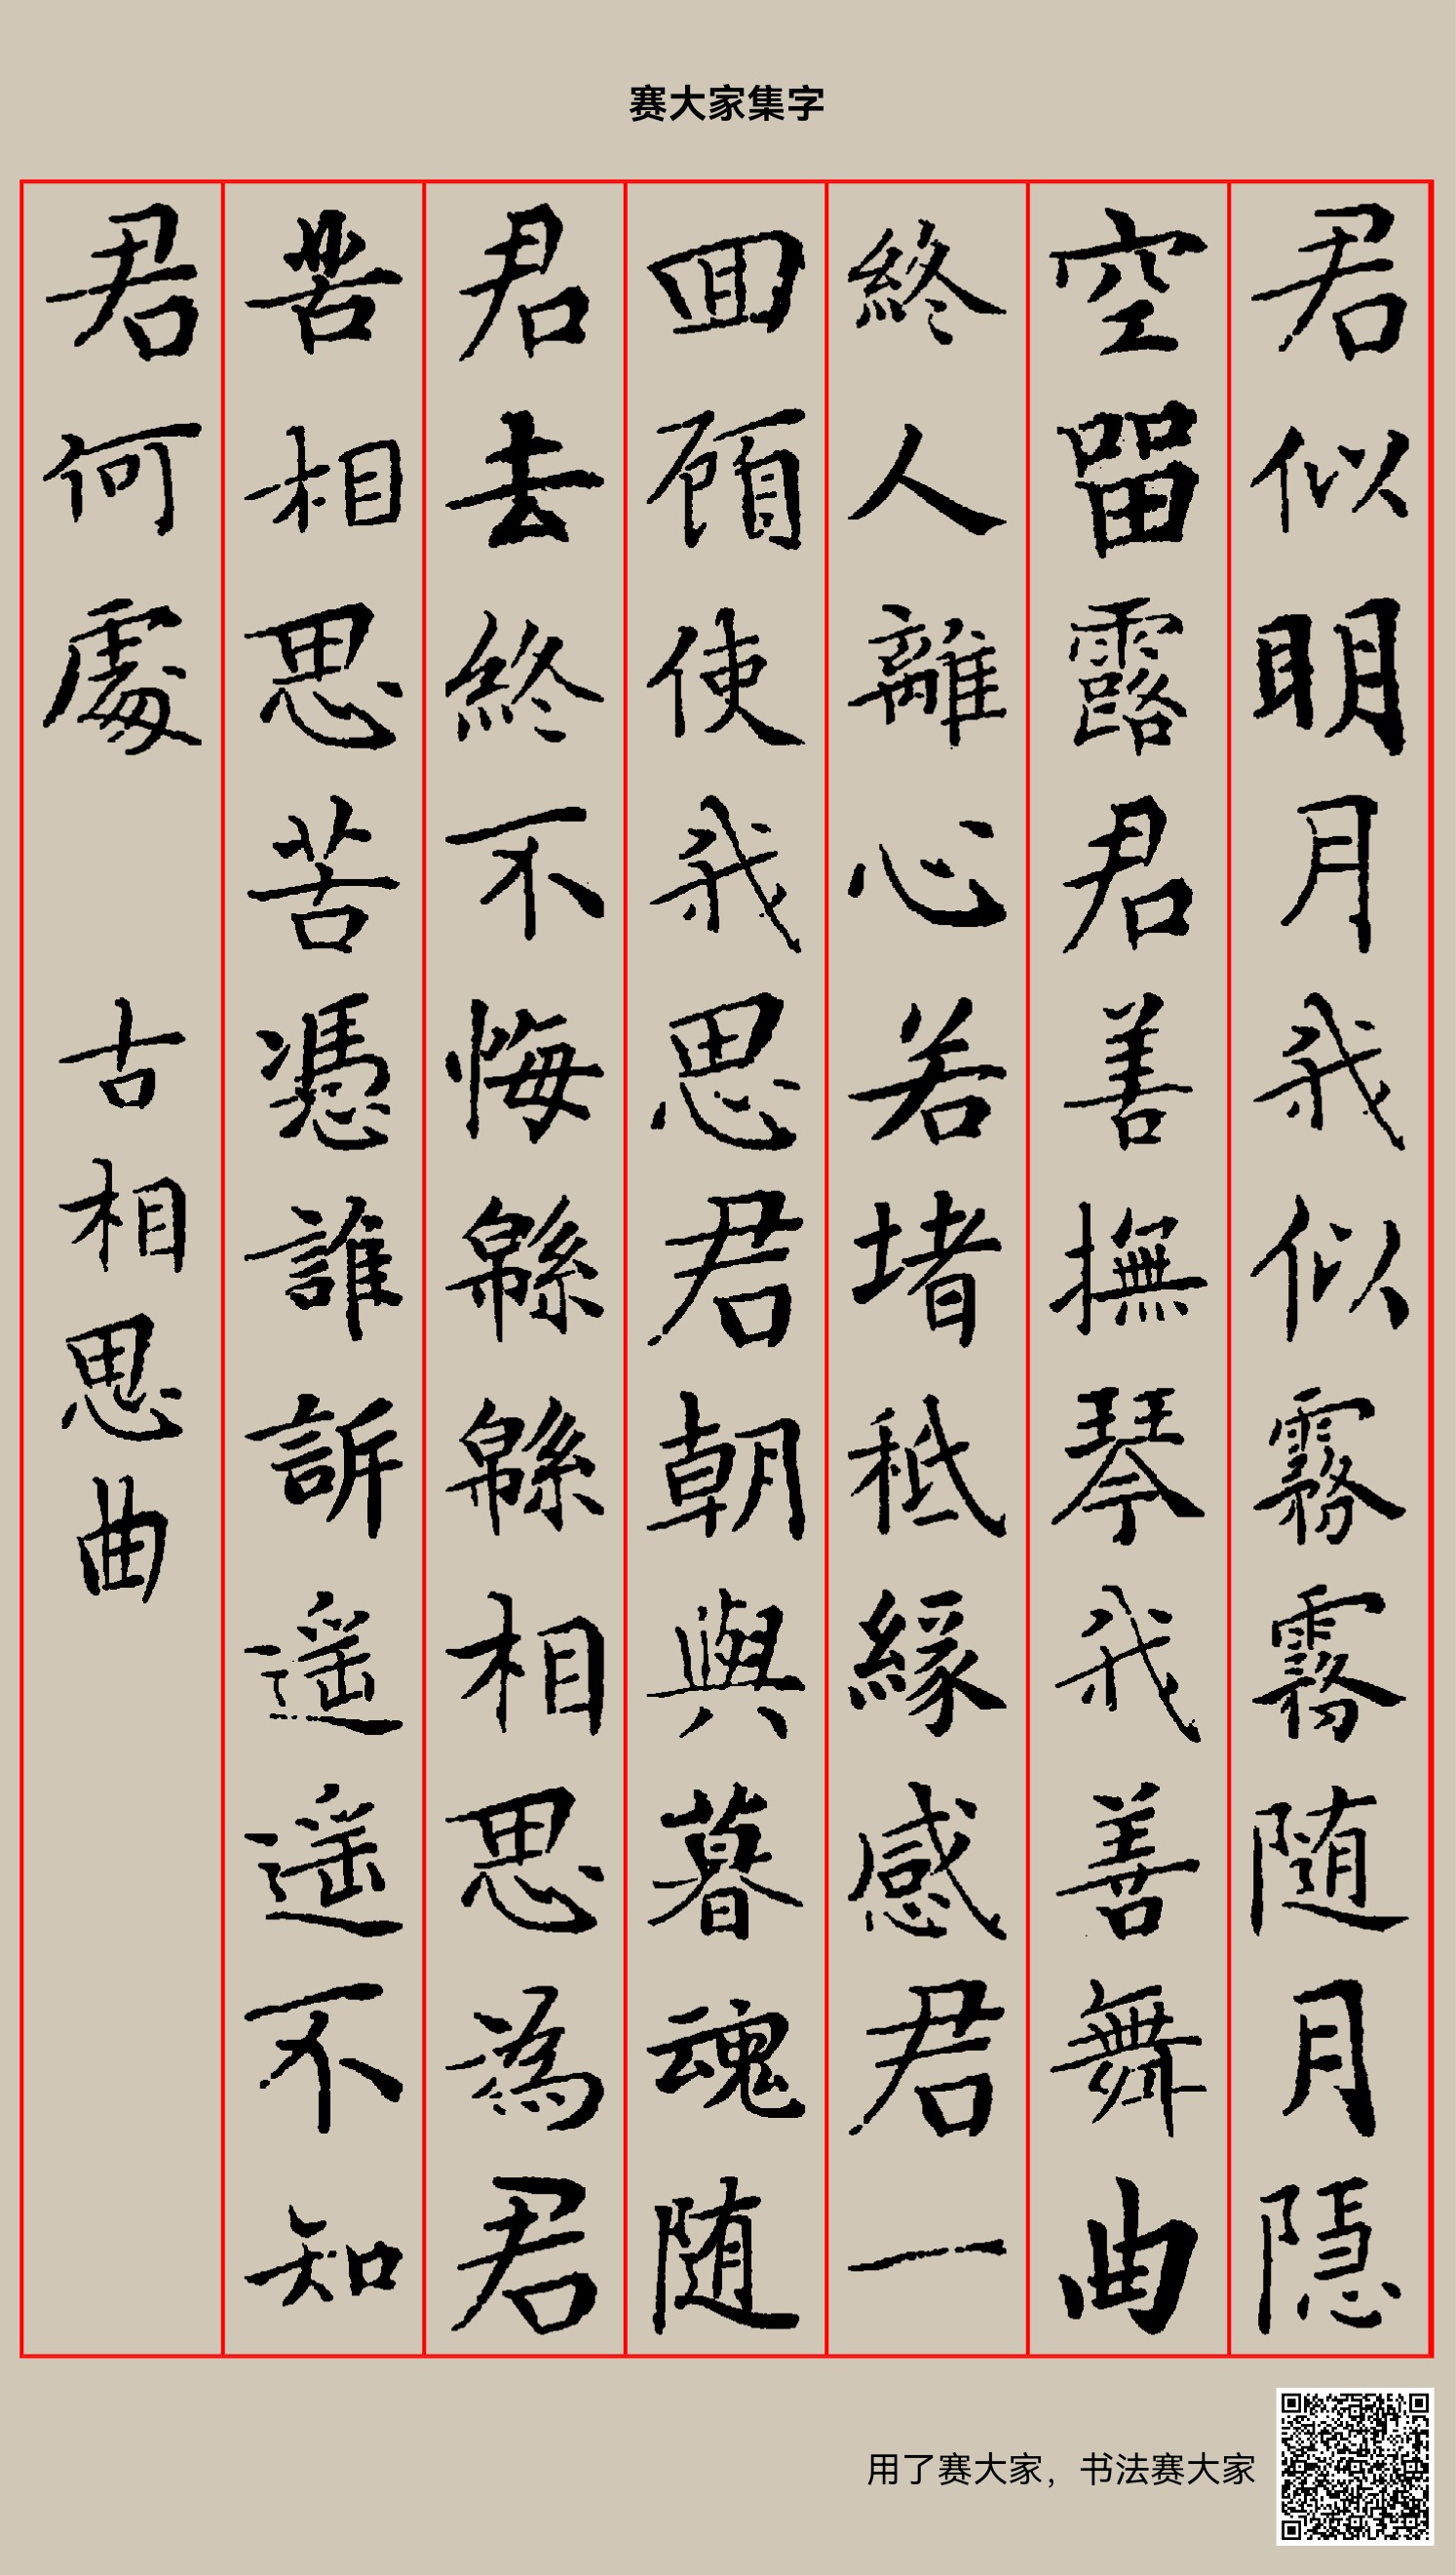 赛大家集字
君似明月我似霧霧随月隠
空留露君善撫琴我善舞曲
終人離心若堵秪緣感君一
回顧使我思君朝與暮魂随
君去終不悔緜緜相思為君
苦相思苦憑誰訴遥遥不知
君何處 古相思曲
用了赛大家，书法赛大家